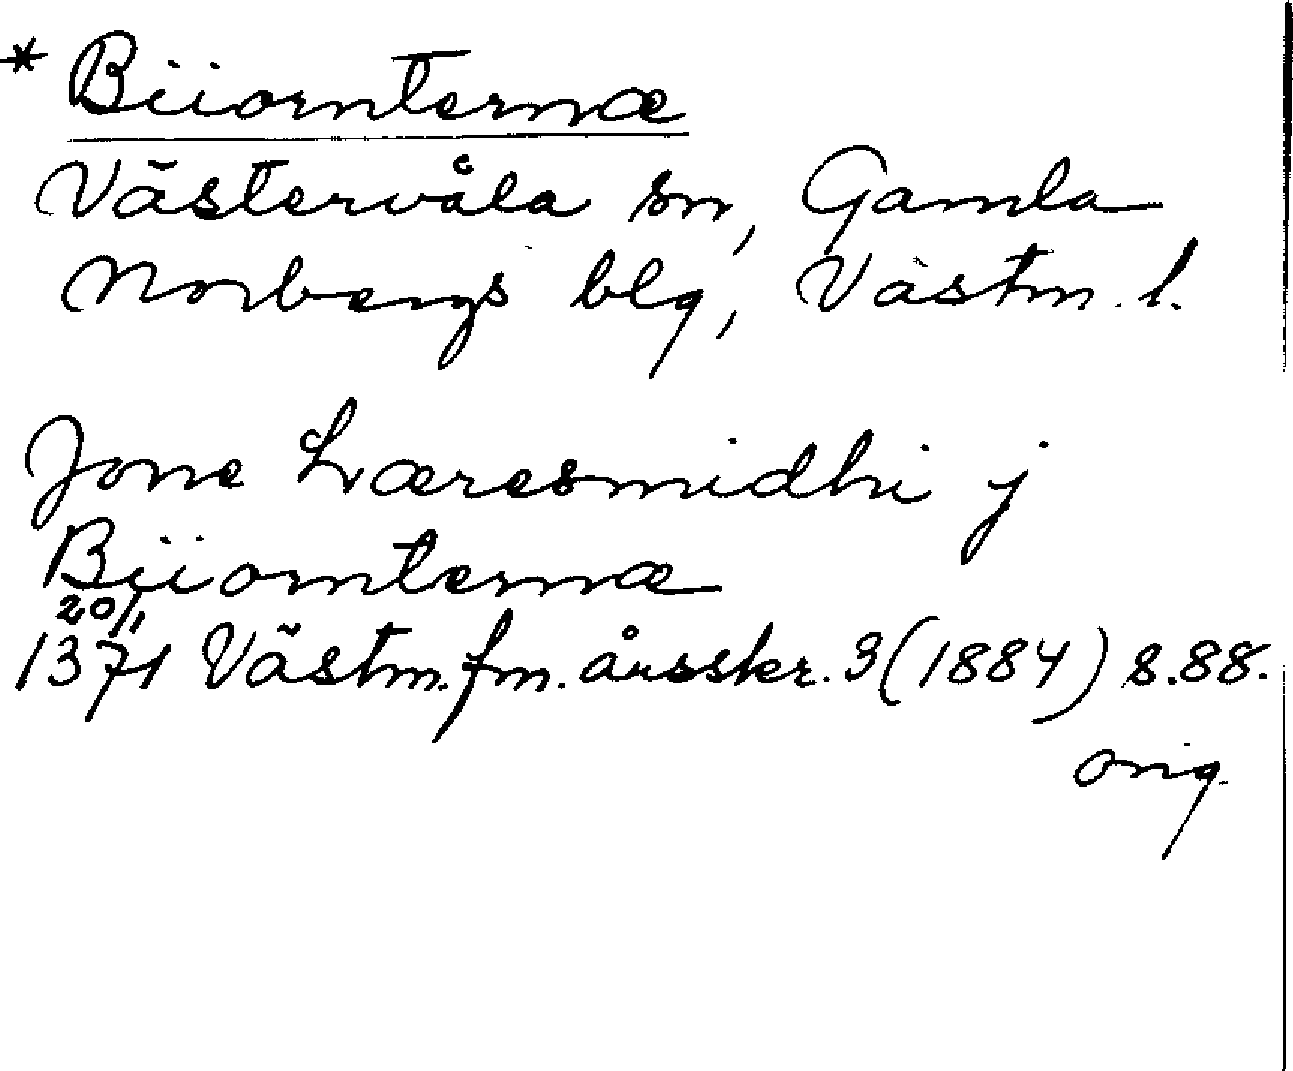 * Biiornternæ
Västervåla sn, Gamla
Norbergs blg, Västm. l.
Jone hwæresmidhi j
Biiornternæ
20/1
1371 Västm. fm. årsskr. 3 (1884) s. 88.
orig.